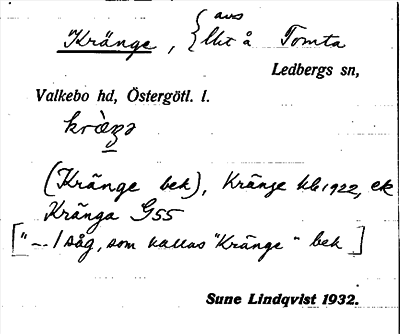 Kränge, { avs
lht å Tomta
Ledbergs sn,
Valkebo hd, Östergötl. l.
(Kränge bek), Kränge kb 1922, ek
Kränga G55
["— 1 såg, som kallas "Kränge" bek]
Sune Lindqvist 1932.